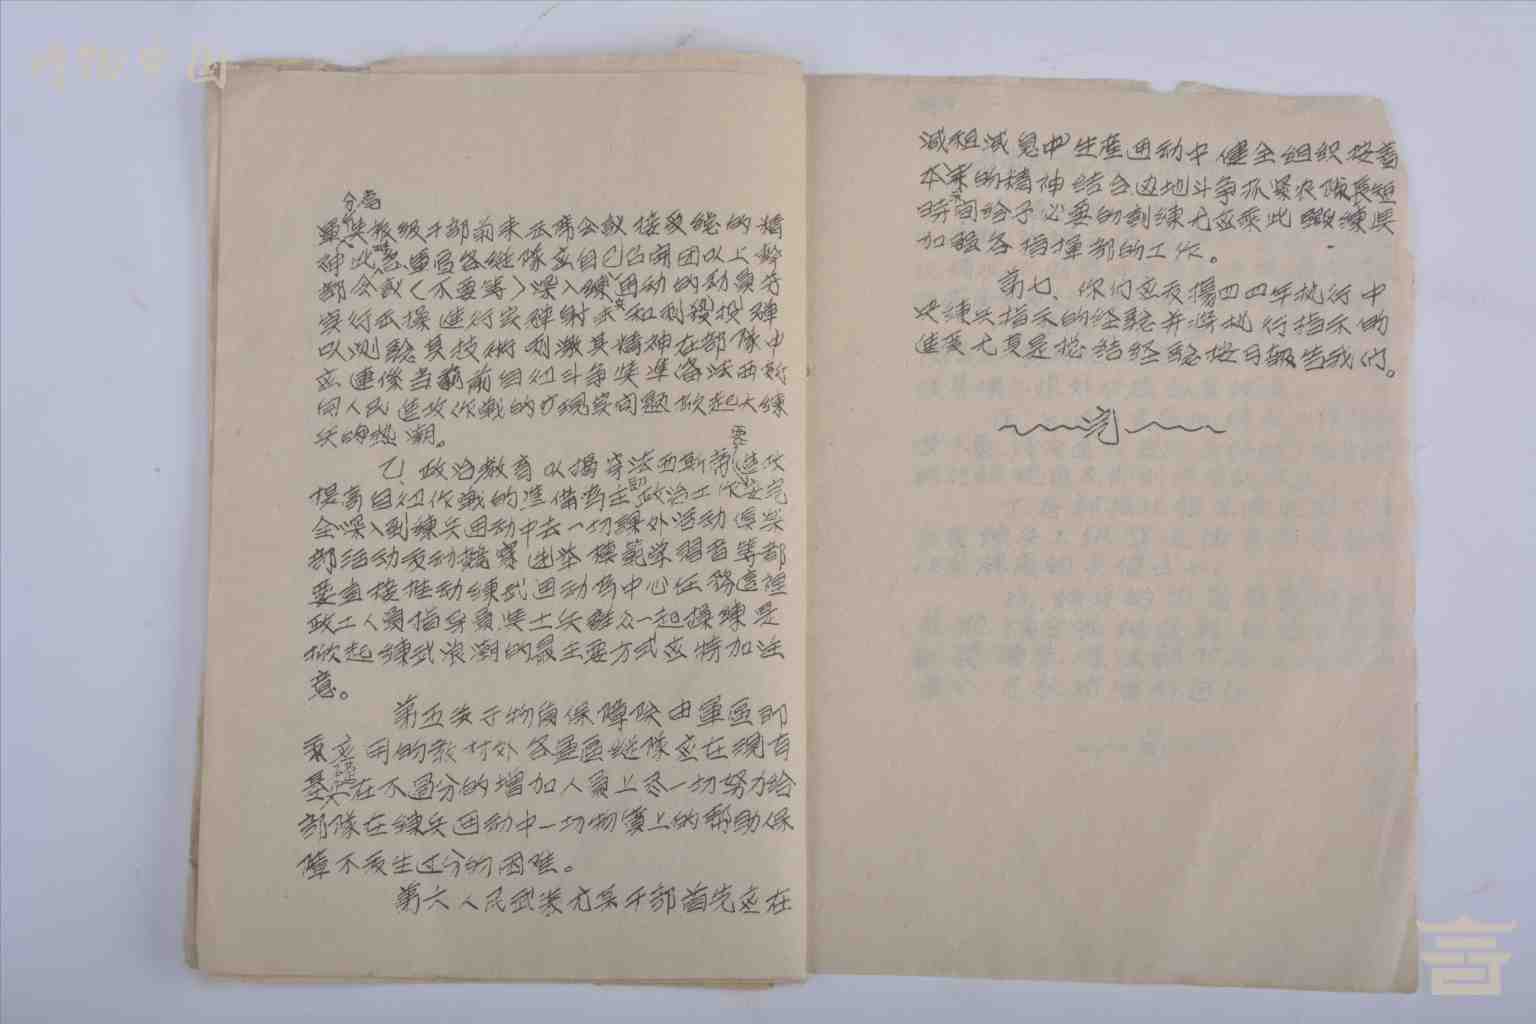 分高
军与教级干部前来出席会议接受总的精
神此外军官各纵队应自己召开团以上干
部会议(不要等)深入练兵运动的动员并
实行武操进行实弹射击和刺杀投弹
以测验其技术刺激其精神在部队中
应连系当前自卫斗争与准备法西斯
向人民进攻作战的现实问题掀起大练
兵的热潮。
乙、政治教育以揭穿法西斯要进攻
提高自卫作战的准备为主政治工作要完
全深入到练兵运动中去一切课外活动俱乐
部活动发动竞赛选举模范学习者等都
要直接推动练武运动为中心任务这里
政工人员指导员与士兵群众一起操练是
掀起练武浪潮的最主要方式应特加注
意。
第五关于物质保障除由军区即
印应用的教材外各军区纵队应在现有
基础在不过分的增加人员上尽一切努力给
部队在练兵运动中一切物质上的帮助保
障不发生过分的困难。
第六人民武装尤其干部首先应在
减租减息中生产运动中健全组织按着
本来的精神结合边地斗争抓紧农隙长短
时间给予必要的训练尤应乘此锻练与
加强各指挥部的工作。
第七、你们应发扬四四年执行中
央练兵指示的经验并将执行指示的
进度尤其是总结经验按日报告我们。
完